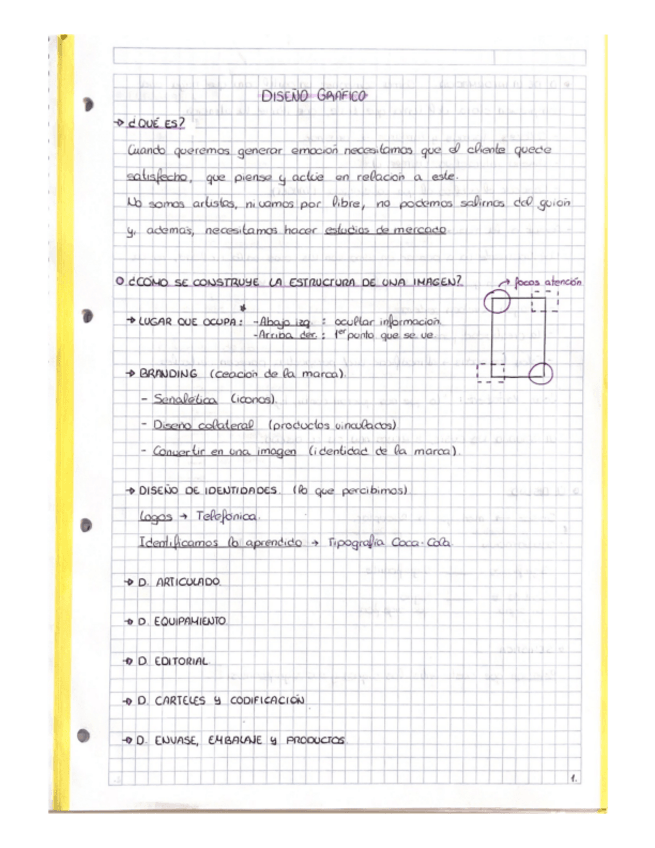 DISEÑO GRAFICO
→ ¿QUÉ ES?
Cuando queremos generar emoción necesitamos que el cliente quede
satisfecho, que piense y actúe en relación a este.
No somos artistas, ni vamos por libre, no podemos salirnos del guión
y, además, necesitamos hacer estudios de mercado
O ¿CÓMO SE CONSTRUYE LA ESTRUCTURA DE UNA IMAGEN?
→ focos atención
→ LUGAR QUE OCUPA: * -Abajo izq : ocultar información
-Arriba dec : 1er punto que se ve
→ BRANDING (ceación de la marca)
- Señalética (iconos)
- Diseño colateral (productos vinculados)
- Convertir en una imagen (identidad de la marca)
→ DISEÑO DE IDENTIDADES (lo que percibimos)
Logos → Telefónica
Identificamos lo aprendido → Tipografía Coca-Cola
→ D. ARTICULADO
→ D. EQUIPAMIENTO
→ D. EDITORIAL
→ D. CARTELES y CODIFICACIÓN
→ D. ENVASE, EMBALAJE y PRODUCTOS
1.